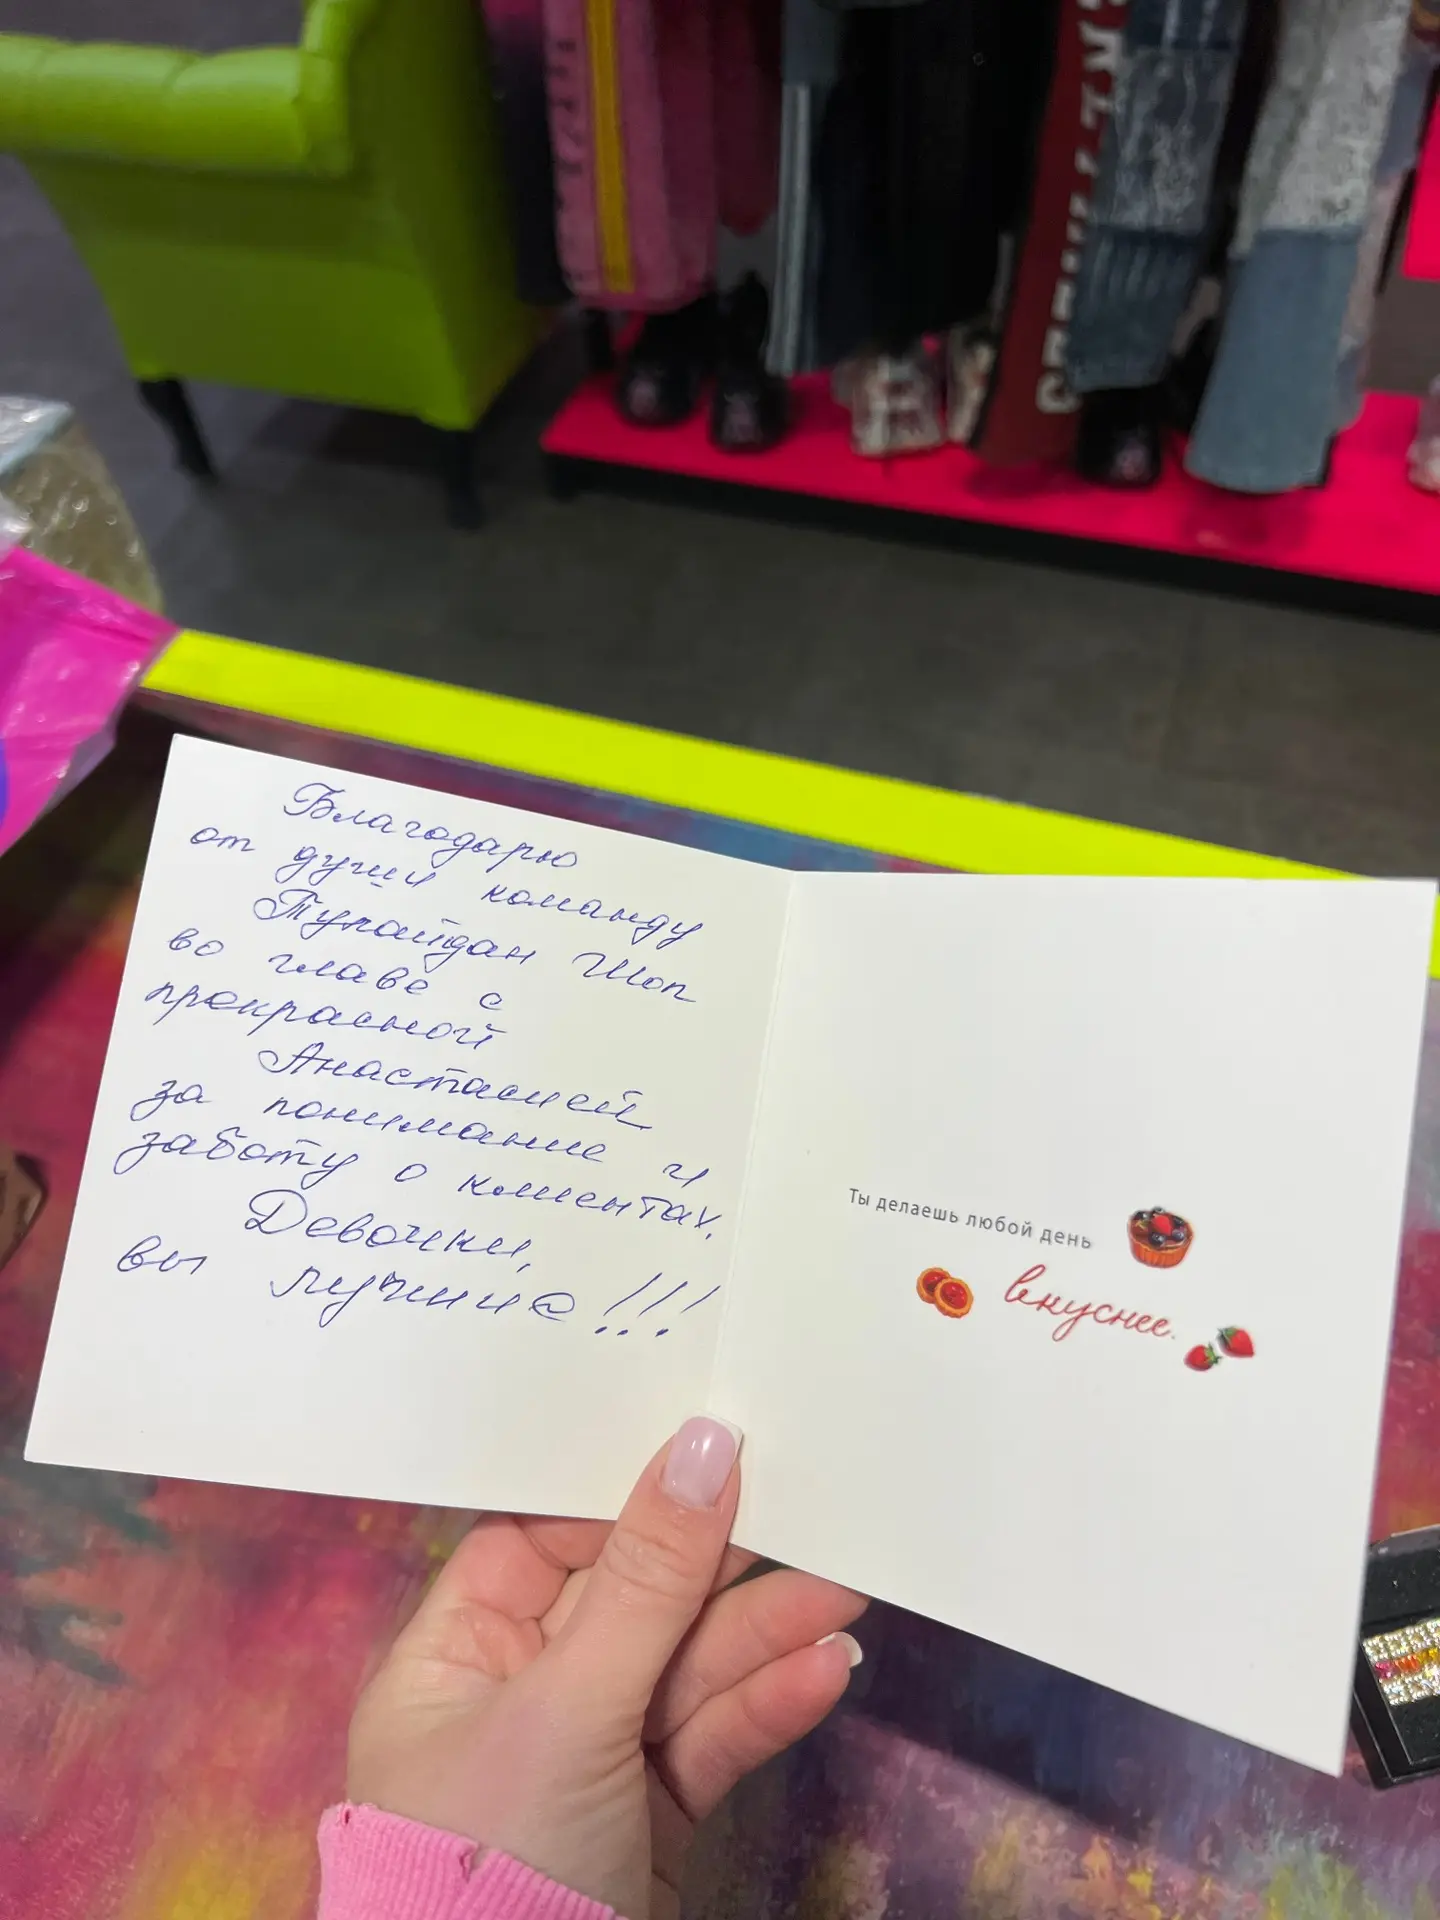 Благодарю
от души команду
Тупайдан Шоп
во главе с
прекрасной
Анастасией
за понимание и
заботу о клиентах.
Девочки,
вы лучшие!!!
Ты делаешь любой день
вкуснее.